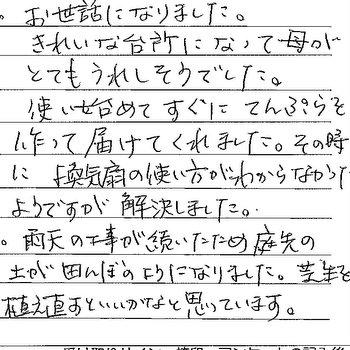 。お世話になりました。
きれいな台所になって母が
とてもうれしそうでした。
使い始めてすぐにてんぷらを
作って届けてくれました。その時
に換気扇の使い方がわからなかった
ようですが解決しました。
。雨天の工事が続いたため庭先の
土が田んぼのようになりました。芝生を
植え直すといいかなと思っています。